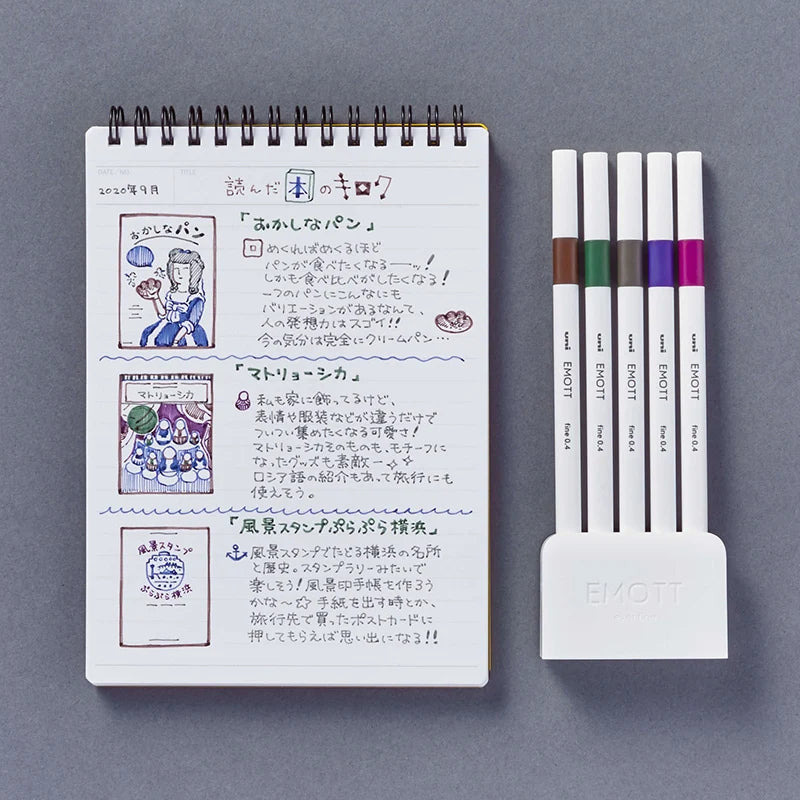 DATE/NO.
TITLE
2020年9月
読んだ本のキロク
おかしなパン
「おかしなパン」
めくればめくるほど
パンが食べたくなるーーッ!
しかも食べ比べがしたくなる!
一つのパンにこんなにも
バリエーションがあるなんて、
人の発想力はスゴイ!!
今の気分は完全にクリームパン…
マトリョーシカ
「マトリョーシカ」
私も家に飾ってるけど、
表情や服装などが違うだけで
ついつい集めたくなる可愛さ!
マトリョーシカそのものも、モチーフに
なったグッズも素敵ー✧✧
ロシア語の紹介もあって旅行にも
使えそう。
風景スタンプ
ぷらぷら横浜
「風景スタンプぷらぷら横浜」
風景スタンプでたどる横浜の名所
と歴史。スタンプラリーみたいで
楽しそう!風景印手帳を作ろう
かな〜☆手紙を出す時とか、
旅行先で買ったポストカードに
押してもらえば思い出になる!!
uni EMOTT fine 0.4
uni EMOTT fine 0.4
uni EMOTT fine 0.4
uni EMOTT fine 0.4
uni EMOTT fine 0.4
EMOTT